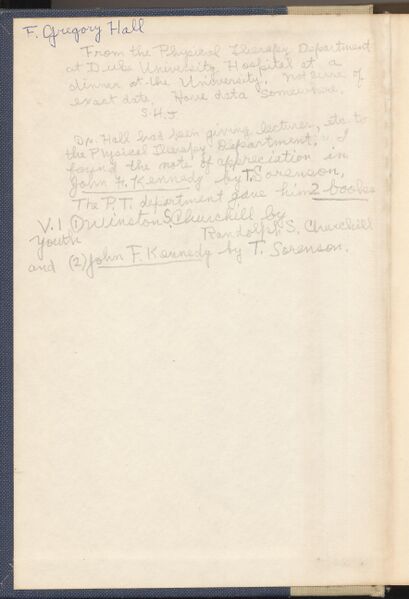 F. Gregory Hall
From the Physical Therapy Department
at Duke University Hospital at a
dinner at the University. Not sure of
exact date. Have data somewhere.
S.H.J
Dr. Hall had been giving lectures, etc. to
the Physical Therapy Department. I
found the note of appreciation in
John F. Kennedy by T. Sorenson,
The P.T. department gave him 2 books
V.1 (1) Winston S. Churchill by
Youth Randolph S. Churchill
and (2) John F. Kennedy by T. Sorenson.